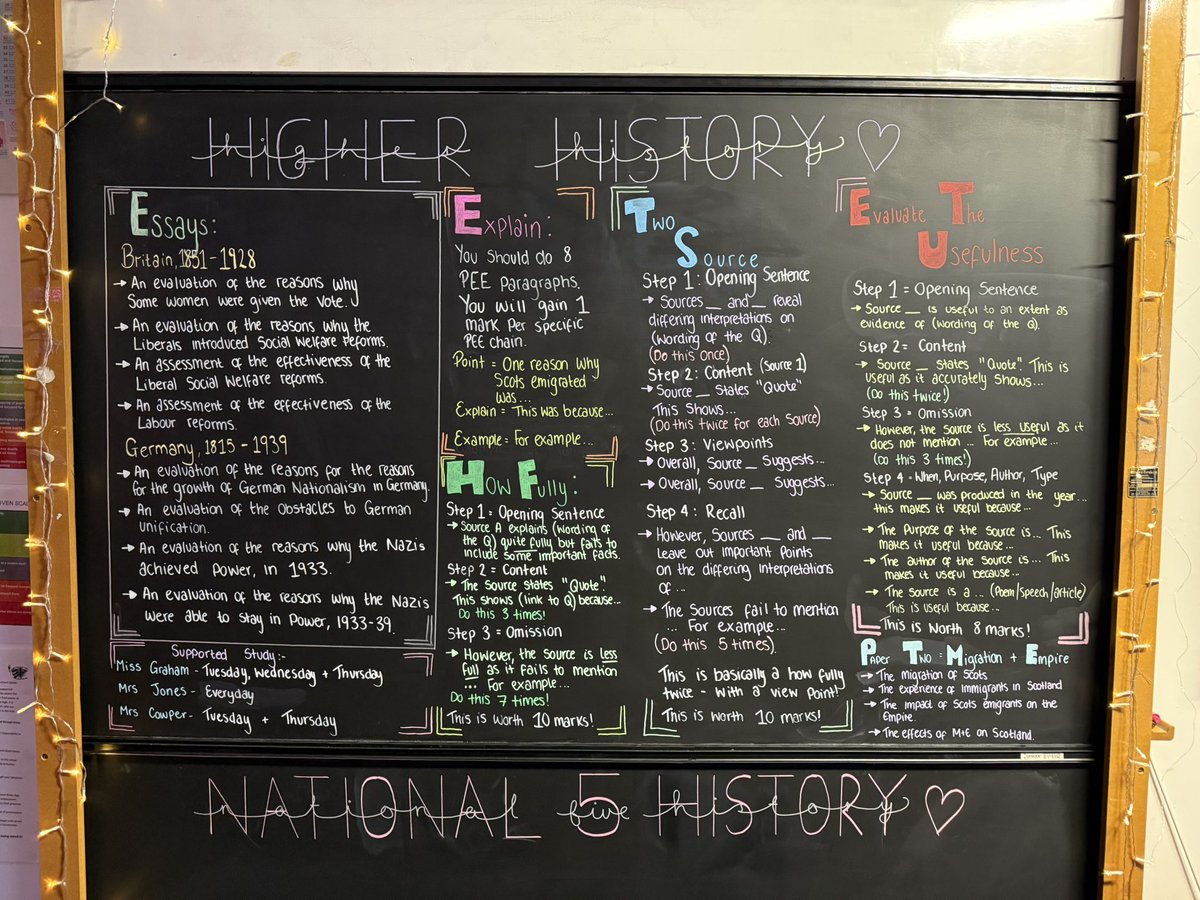 HIGHER HISTORY
higher history
Essays:
Britain, 1851-1928
→ An evaluation of the reasons why
Some women were given the vote.
→ An evaluation of the reasons why the
Liberals introduced Social Welfare reforms.
→ An assessment of the effectiveness of the
Liberal Social Welfare reforms.
→ An assessment of the effectiveness of the
Labour reforms.
Germany, 1815-1939
→ An evaluation of the reasons for the reasons
for the growth of German Nationalism in Germany.
→ An evaluation of the obstacles to German
Unification.
→ An evaluation of the reasons why the Nazis
achieved Power, in 1933.
→ An evaluation of the reasons why the Nazis
were able to stay in Power, 1933-39.
Supported Study:-
Miss Graham - Tuesday, Wednesday + Thursday
Mrs Jones - Everyday
Mrs Cowper - Tuesday + Thursday
Explain:
You Should do 8
PEE Paragraphs.
You will gain 1
mark Per specific
PEE chain.
Point = One reason why
Scots emigrated
was...
Explain = This was because...
Example = For example...
How Fully:
Step 1 = Opening Sentence
→ Source A explains (wording of
the Q) quite fully but fails to
include some important facts.
Step 2 = Content
→ The Source states "Quote".
This shows (link to Q) because...
Do this 3 times!
Step 3 = Omission
→ However, the source is less
full as it fails to mention
... For example...
Do this 7 times!
This is worth 10 marks!
Two
Source
Step 1: Opening Sentence
→ Sources __ and __ reveal
differing interpretations on
(wording of the Q).
(Do this once)
Step 2: Content (Source 1)
→ Source __ States "Quote"
This Shows...
(Do this twice for each Source)
Step 3: Viewpoints
→ Overall, Source __ Suggests...
→ Overall, Source __ Suggests...
Step 4: Recall
→ However, Sources __ and __
leave out important Points
on the differing interpretations
of...
→ The Sources fail to mention
... For example...
(Do this 5 times)
This is basically a how fully
twice - with a view Point!
This is worth 10 marks!
Evaluate The
Usefulness
Step 1 = Opening Sentence
→ Source __ is useful to an extent as
evidence of (wording of the Q).
Step 2 = Content
→ Source __ states "Quote". This is
useful as it accurately shows...
(Do this twice!)
Step 3 = Omission
→ However, the source is less useful as it
does not mention ... For example...
(Do this 3 times!)
Step 4 - When, Purpose, Author, Type
→ Source __ was produced in the year...
this makes it useful because...
→ The Purpose of the Source is... This
makes it useful because...
→ The author of the Source is... This
makes it useful because...
→ The source is a ... (Poem/speech/article)
This is useful because...
This is worth 8 marks!
Paper Two = Migration + Empire
→ The migration of Scots
→ The experience of Immigrants in Scotland
→ The impact of Scots emigrants on the
Empire.
→ The effects of M+E on Scotland.
NATIONAL 5 HISTORY
national five history